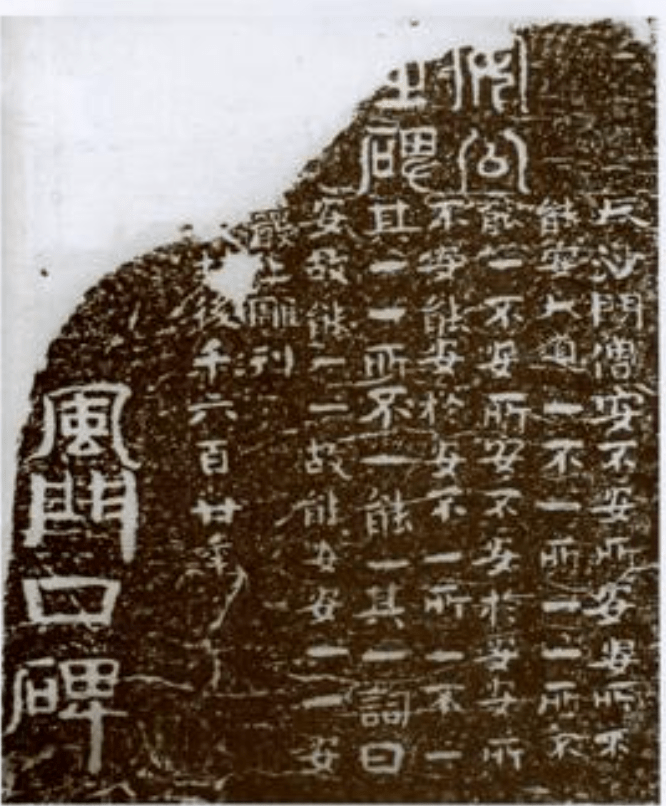 公
碑
大沙門僧安不安所安安所不
能安大道一不一所一一所不
能一不安所安不安於安安所
不安能安於安不一所一不一
且一一所不一能一其一詞曰
安故能一一故能安安一一安
巖上雕刊
後千六百廿年
風門口碑